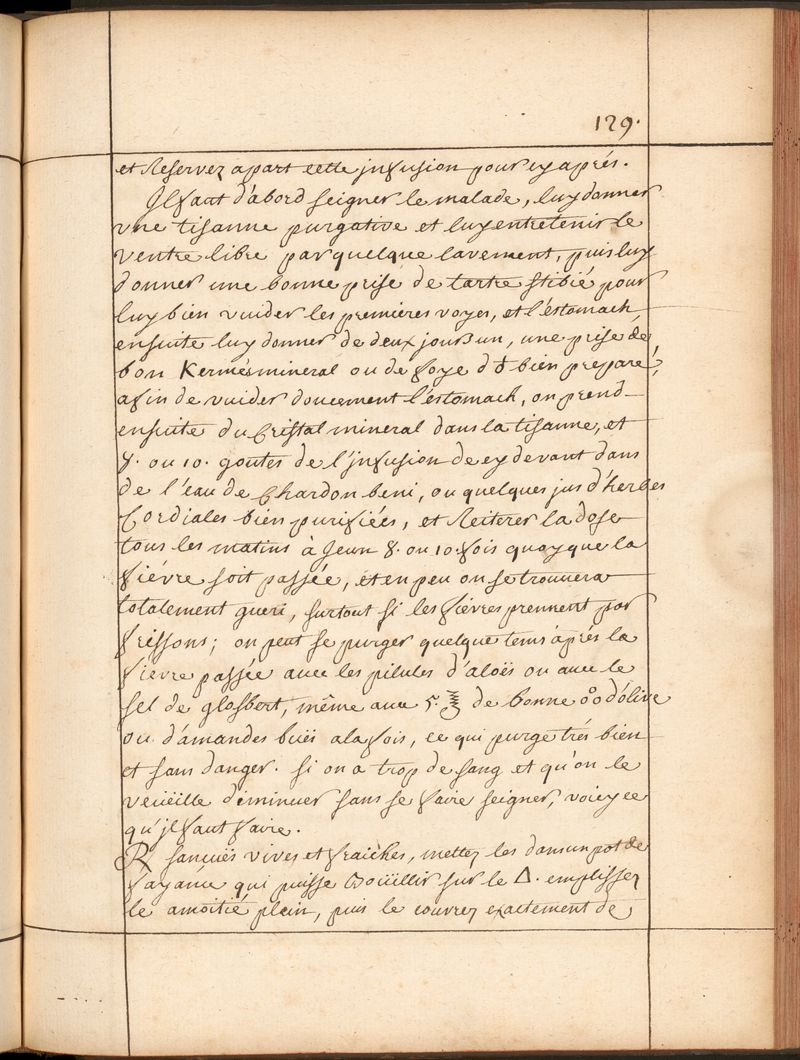 129.
et Reservez apart cette jnfusion pour cy aprés.
Jl faut d'abord seigner le malade, luy donner
une tisanne purgative et luy entretenir le
ventre libre par quelque lavement, puis luy
donner une bonne prise de tartre stibié pour
luy bien vuider les premieres voyes, et l'éstomach
ensuite luy donner de deux jours un, une prise de
bon Kermés mineral ou de foye d'♁ bien preparé,
afin de vuider doucement l'éstomach, on prend
ensuite du Cristal mineral dans la tisanne, et
8. ou 10. goutes de l'jnfusion de cy devant dans
de l'eau de Chardon beni, ou quelques jus d'herbes
Cordiales bien purifiées, et Reiterer la dose
tous les matins à Jeun 8. ou 10. fois quoy que la
fiévre soit passée, et en peu on se trouvera
totalement gueri, surtout si les fiévres prennent par
frissons; on peut se purger quelque tems aprés la
fievre passée avec les pilules d'aloës ou avec le
sel de glosbert, même avec 5. ℥ de bonne o°o d'ólive
ou d'amandes buës a la fois, ce qui purge trés bien
et sans danger. si on a trop de sang et qu'on le
veüeille diminuer sans se faire seigner, voicy ce
qu'jl faut faire.
℞ sansuës vives et fraiches, mettez les dans un pot de
fayance qui puisse Boüillir sur le △. emplissez
le amoitié plein, puis le couvrez exactement de